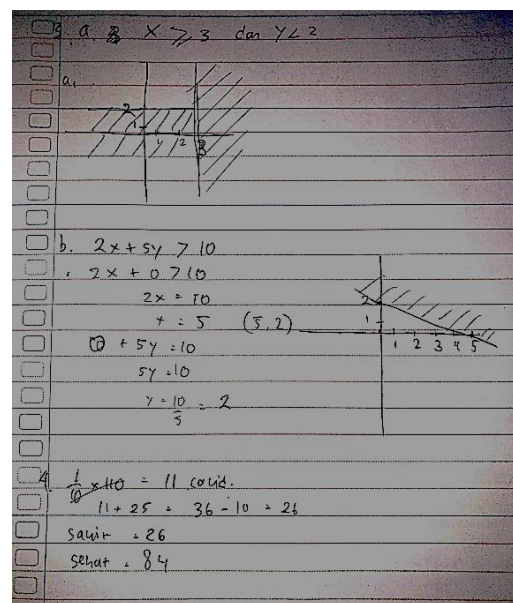 3. a. x ≥ 3 dan y < 2
a.
2
1
1 2 3
b. 2x + 5y > 10
2x + 0 > 10
2x = 10
x = 5 (5, 2)
0 + 5y = 10
5y = 10
y = 10/5 = 2
2
1
1 2 3 4 5
4. 1/10 x 110 = 11 covid.
11 + 25 = 36 - 10 = 26
sakit = 26
sehat = 84